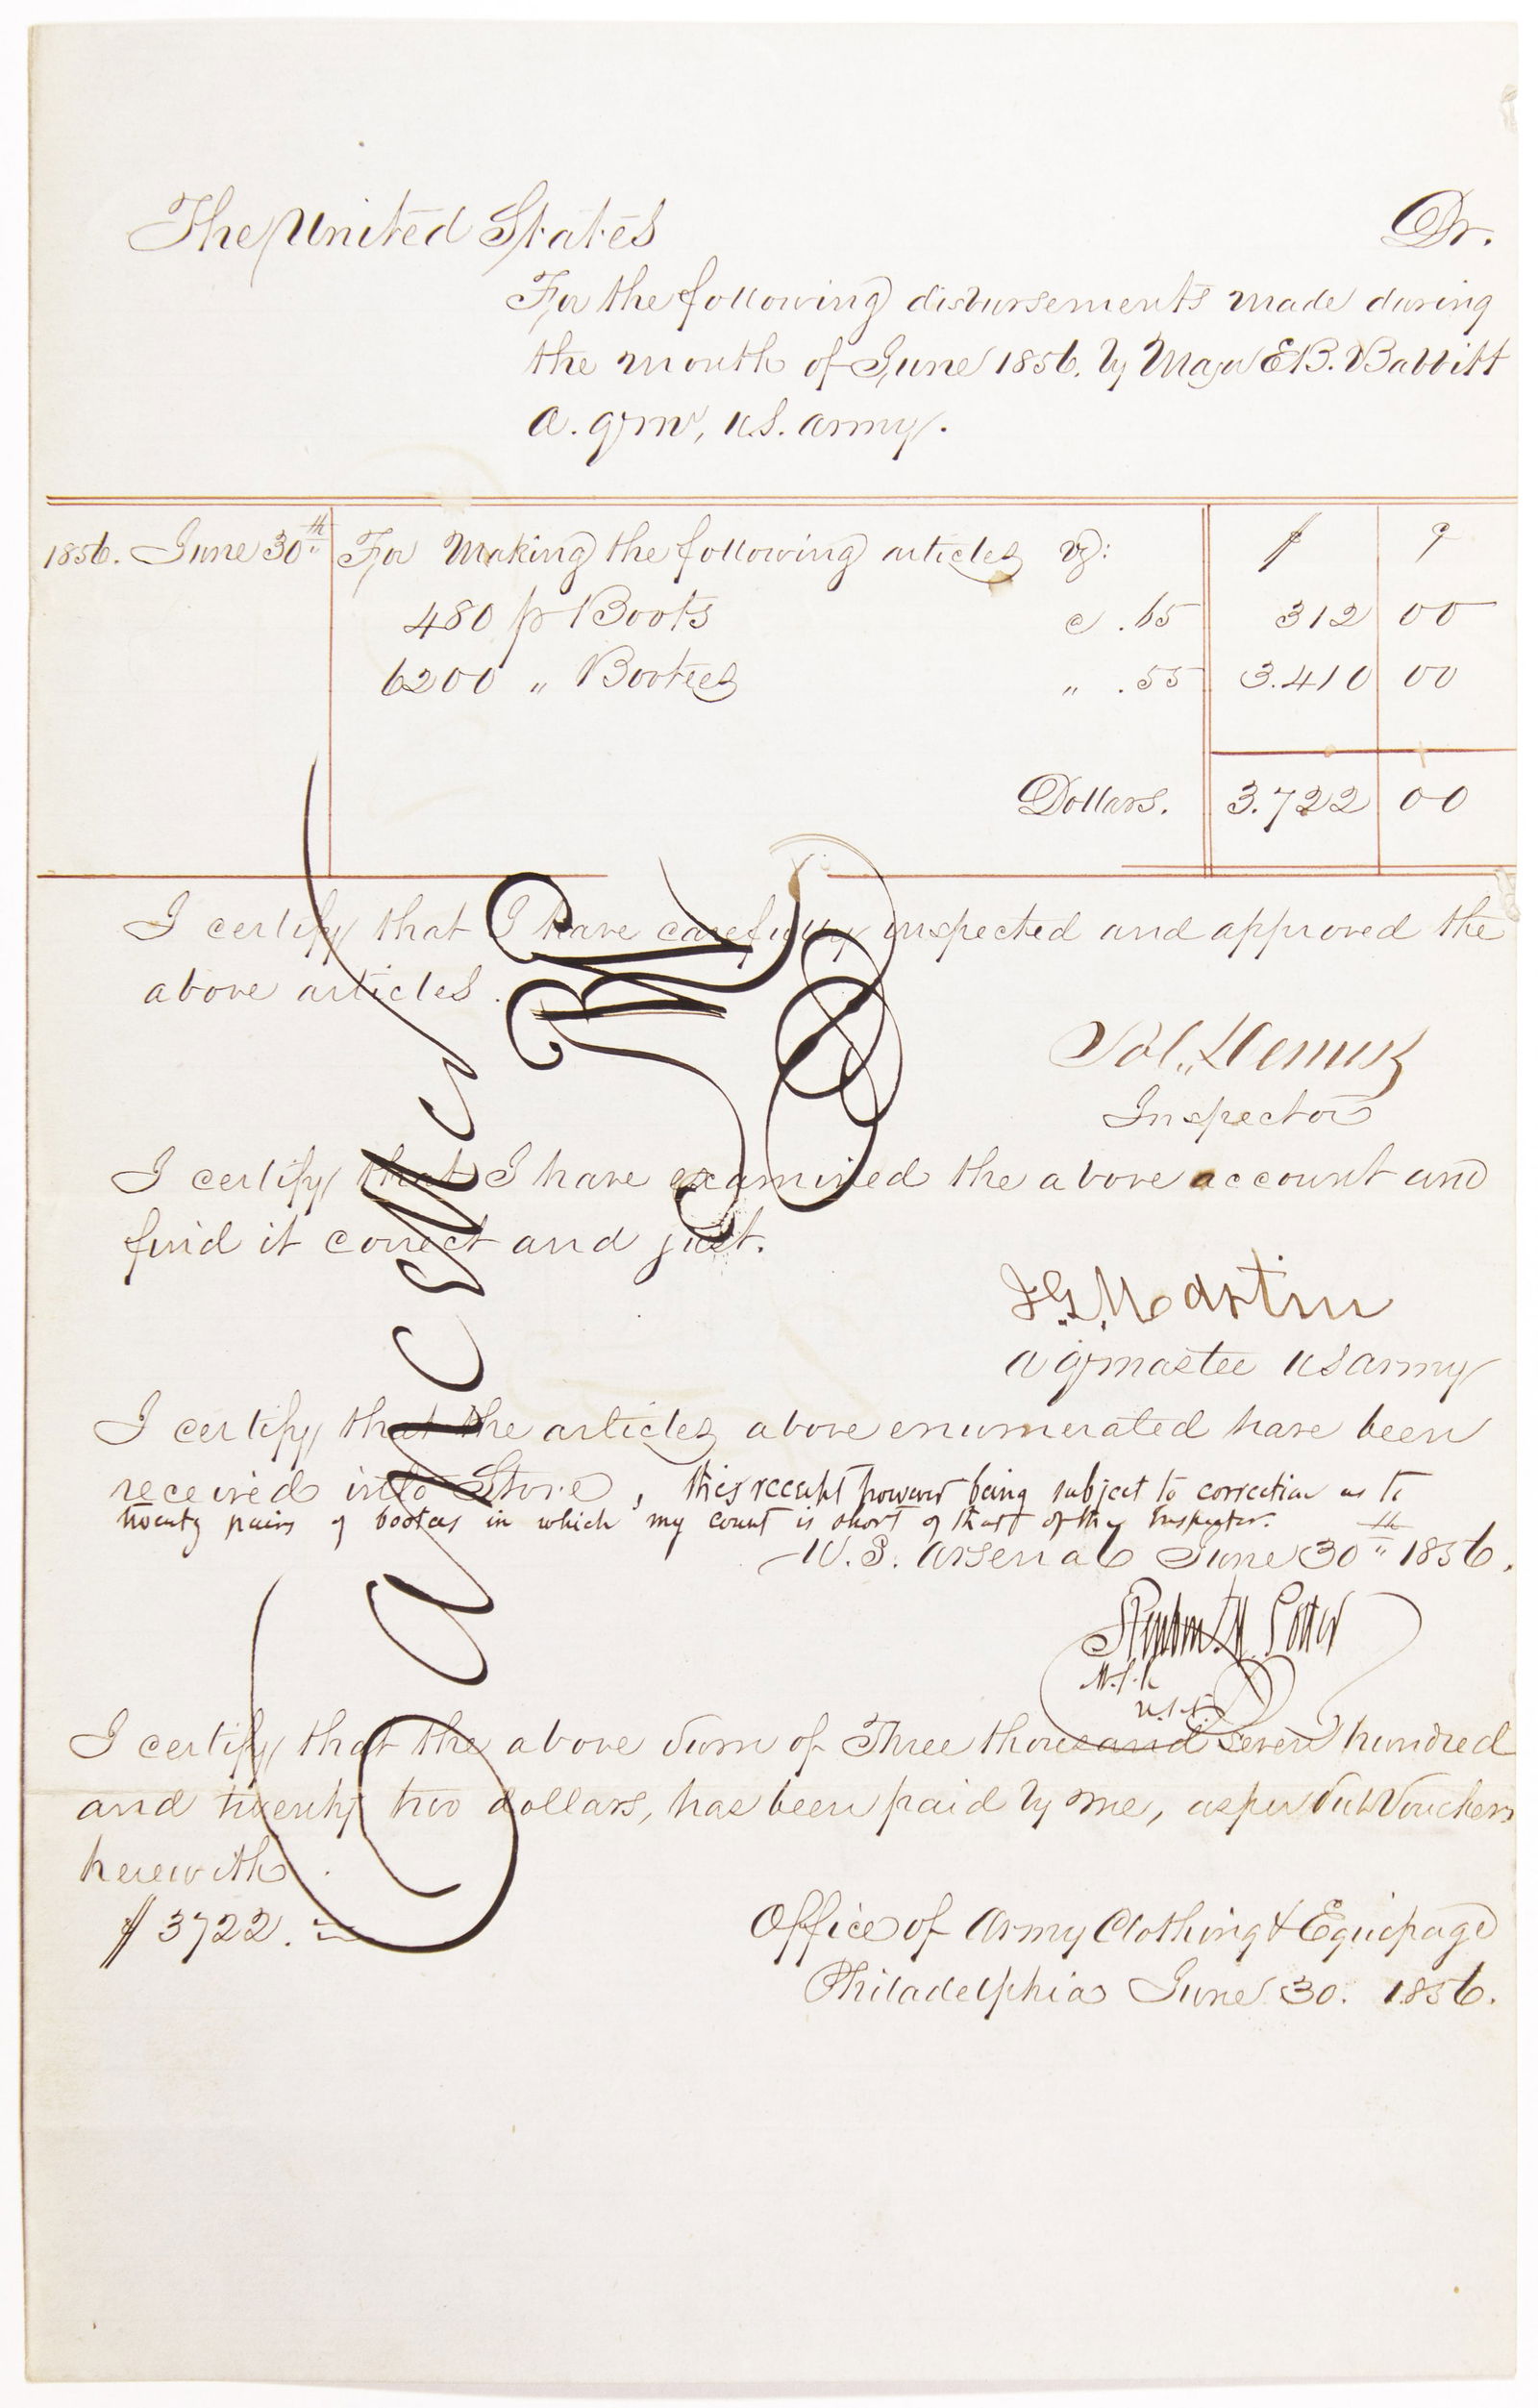 The United States Dr.
For the following disbursements made during
the month of June 1856. by Major E.B. Babbitt
A. Qr Mr, U.S. Army.
1856. June 30th For Making the following articles viz: $ ¢
480 pr Boots @ .65 312 00
6200 " Bootees " .55 3.410 00
Dollars. 3.722 00
I certify that I have carefully inspected and approved the
above articles.
Sol.
Inspector
I certify that I have examined the above account and
find it correct and just.
J.G. Martin
A Qrmaster US Army
I certify that the articles above enumerated have been
received into Store, this receipt however being subject to correction as to
twenty pairs of bootees in which my count is short of that of the Inspector.
U.S. Arsenal June 30th 1856.
Reuben M. Potter
M.S.K
U.S.A.
I certify that the above sum of Three thousand seven hundred
and twenty two dollars, has been paid by me, as per Sub Vouchers
herewith.
$3722.
Office of Army Clothing & Equipage
Philadelphia June 30. 1856.
Cancelled